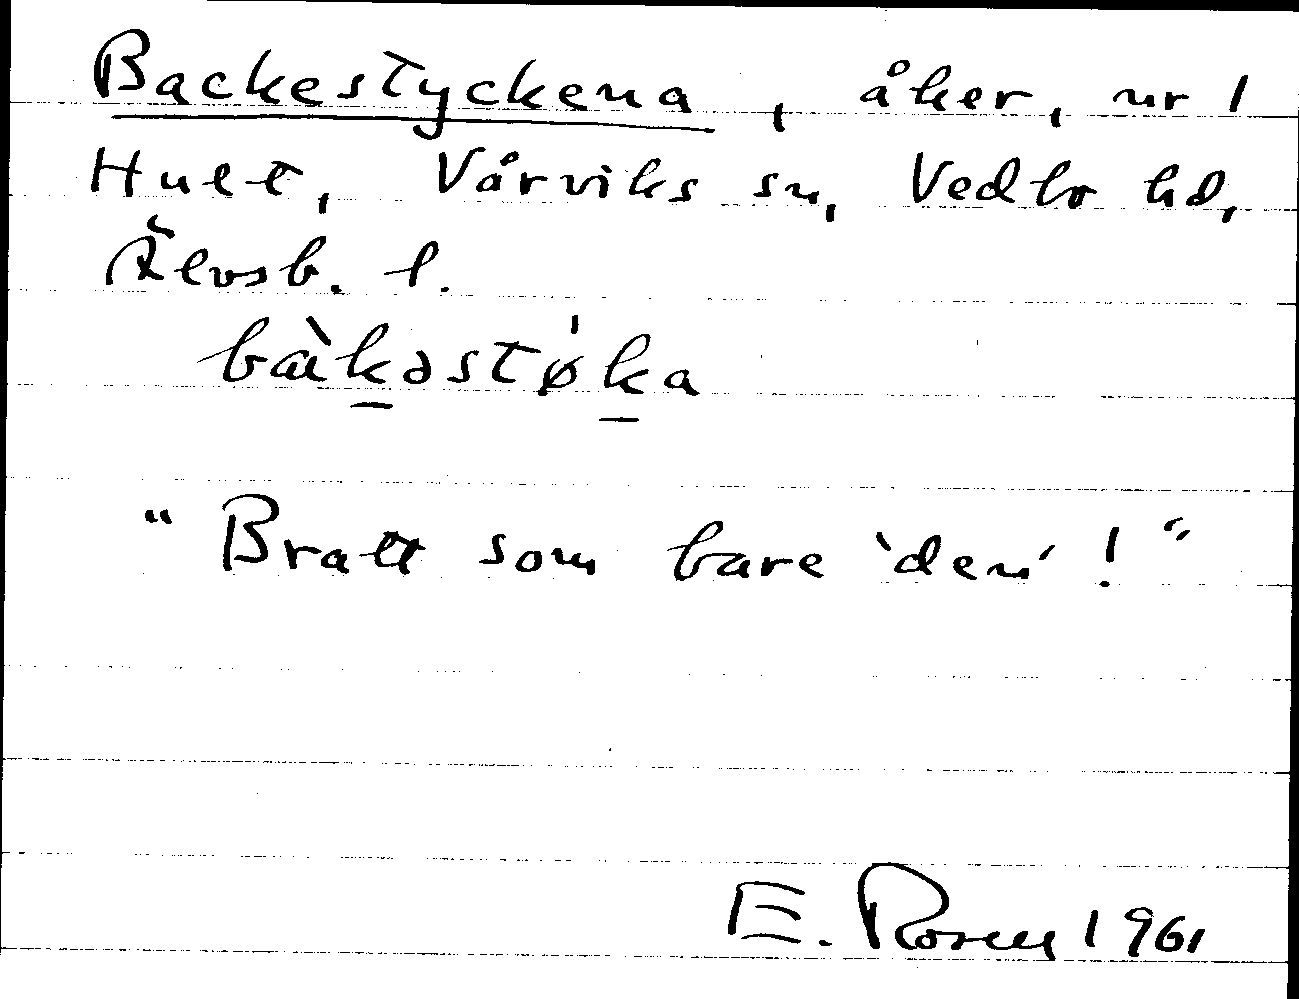 Backestyckena, åker, nr 1
Hult, Vårviks sn, Vedbo hd,
Älvsb. l.
bàkəstø̍ka
"Bratt som bare 'den'!"
E. Rosén 1961